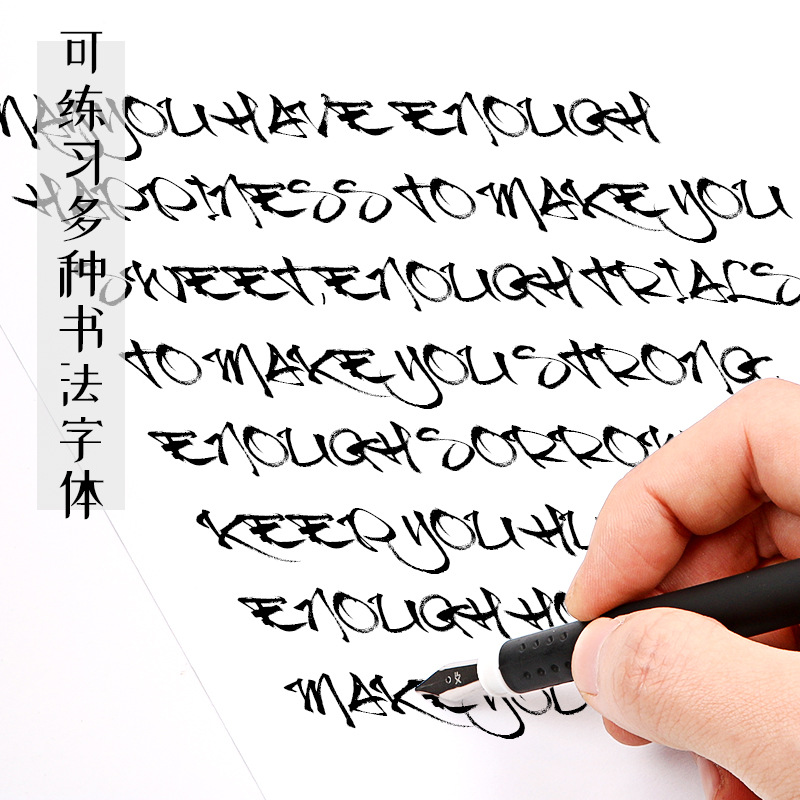 可练习多种书法字体
MAY YOU HAVE ENOUGH
HAPPINESS TO MAKE YOU
SWEET, ENOUGH TRIALS
TO MAKE YOU STRONG
ENOUGH SORROW
KEEP YOU HU
ENOUGH HO
MAKE YOU